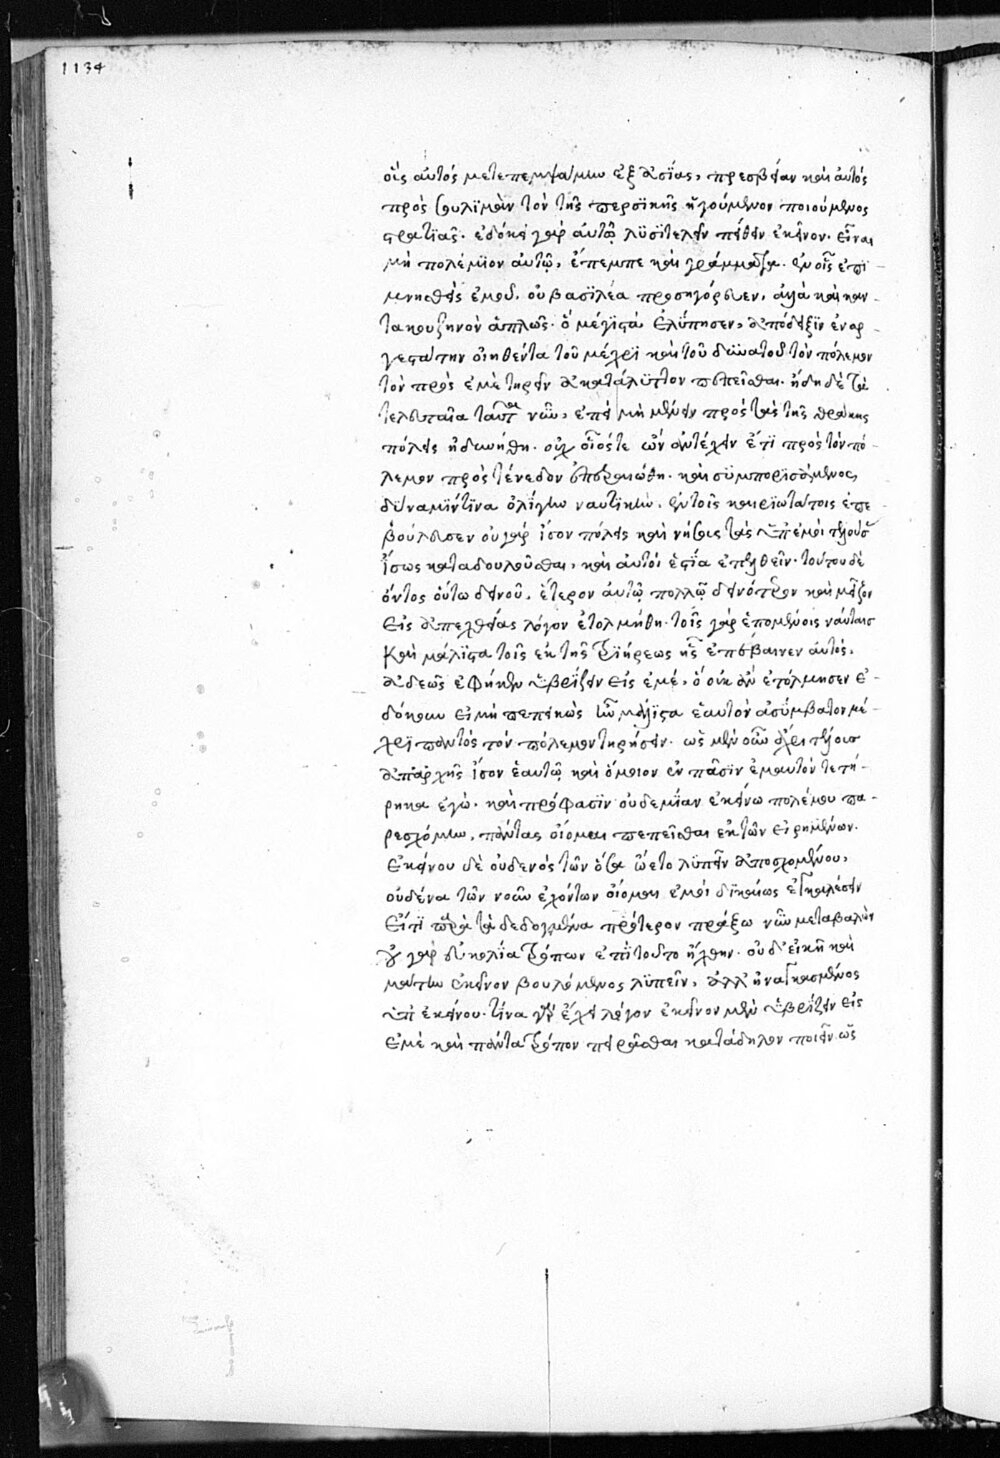 1134
οἷς αὐτὸς μετεπεμψάμην ἐξ ἀσίας, πρεσβείαν καὶ αὐτὸς
πρὸς σουλϊμὰν τὸν τῆς περσϊκῆς ἡγούμενον ποιούμενος
στρατϊᾶς. ἐδόκει γὰρ αὐτῷ λϋσϊτελεῖν πείθειν ἐκεῖνον. εἶναι
μὴ πολέμϊον αὐτῷ, ἔπεμπε καὶ γράμματα. ἐν οἷς ἐπϊ-
μνησθεὶς ἐμοῦ, οὐ βασϊλέα προσηγόρευεν, ἀλλὰ καὶ καν-
τακουζηνὸν ἁπλῶς. ὃ μέγϊστα ἐλΰπησεν, ἀπόδειξϊν ἐναρ-
γεστάτην οἰηθέντα τοῦ μέχρϊ καὶ τοῦ δϋνατοῦ τὸν πόλεμον
τὸν πρὸς ἐμὲ τηρεῖν ἀκατάλϋτον πεπεῖσθαι. ἤδη δὲ τὰ
τελευταῖα ταῦτα νῦν, ἐπεὶ μὴ μένειν πρὸς ταῖς τῆς θρᾴκης
πόλεις ἠδυνήθη. οὐχ οἷός τε ὢν ἀντέχειν ἔτϊ πρὸς τὸν πό-
λεμον πρὸς τένεδον ἐπεραιώθη. καὶ σϋμπορϊσάμενος
δΰναμΐν τϊνα ὀλΐγην ναυτϊκὴν, ἐν τοῖς καιρϊωτάτοις ἐπε-
βούλευσεν οὐ γὰρ ἴσον πόλεις καὶ νήσους τὰς ὑπ' ἐμοὶ τελούσας
ἴσως καταδουλοῦσθαι, καὶ αὐτοὶ ἑστΐα ἐπελθεῖν. τούτου δὲ
ὄντος οὕτω δεινοῦ, ἕτερον αὐτῷ πολλῷ δεινότερον καὶ μεῖζον
εἰς ἀπεχθείας λόγον ἐτολμήθη. τοῖς γὰρ ἑπομένοις ναύταις
καὶ μάλϊστα τοῖς ἐκ τῆς τρϊήρεως ἧς ἐπέβαινεν αὐτός,
ἀδεῶς ἐφῆκεν ὑβρΐζειν εἰς ἐμέ, ὃ οὐκ ἂν ἐτόλμησεν ἐ-
δόκουν εἰ μὴ πεπεικὼς ἦν μάλϊστα ἑαυτὸν ἀσΰμβατον μέ-
χρϊ παντὸς τὸν πόλεμον τηρήσειν. ὡς μὲν οὖν ἄχρι τέλους
ἀπαρχῆς ἴσον ἑαυτῷ καὶ ὅμοιον ἐν πᾶσϊν ἐμαυτὸν τετή-
ρηκα ἐγὼ. καὶ πρόφασϊν οὐδεμΐαν ἐκείνω πολέμου πα-
ρεσχόμην, πάντας οἴομαι πεπεῖσθαι ἐκ τῶν εἰρημένων.
ἐκείνου δὲ οὐδενὸς τῶν ὅσα ᾤετο λϋπεῖν ἀποσχομένου,
οὐδένα τῶν νοῦν ἐχόντων οἴομαι ἐμοὶ δϊκαίως ἐγκαλέσειν
εἴ τϊ παρὰ τὰ δεδογμένα πρότερον πράξω νῦν μεταβαλὼν
οὐ γὰρ εὐκολΐα τρόπων ἐπὶ τοῦτο ἦλθην. οὐδ' εἰκῆ καὶ
μάτην ἐκεῖνον βουλόμενος λϋπεῖν, ἀλλ' ἠναγκασμένος
ὑπ' ἐκείνου. τΐνα γὰρ ἔχει λόγον ἐκεῖνον μὲν ὑβρΐζειν εἰς
ἐμὲ καὶ πάντα τρόπον πειρᾶσθαι κατάδηλον ποιεῖν ὡς